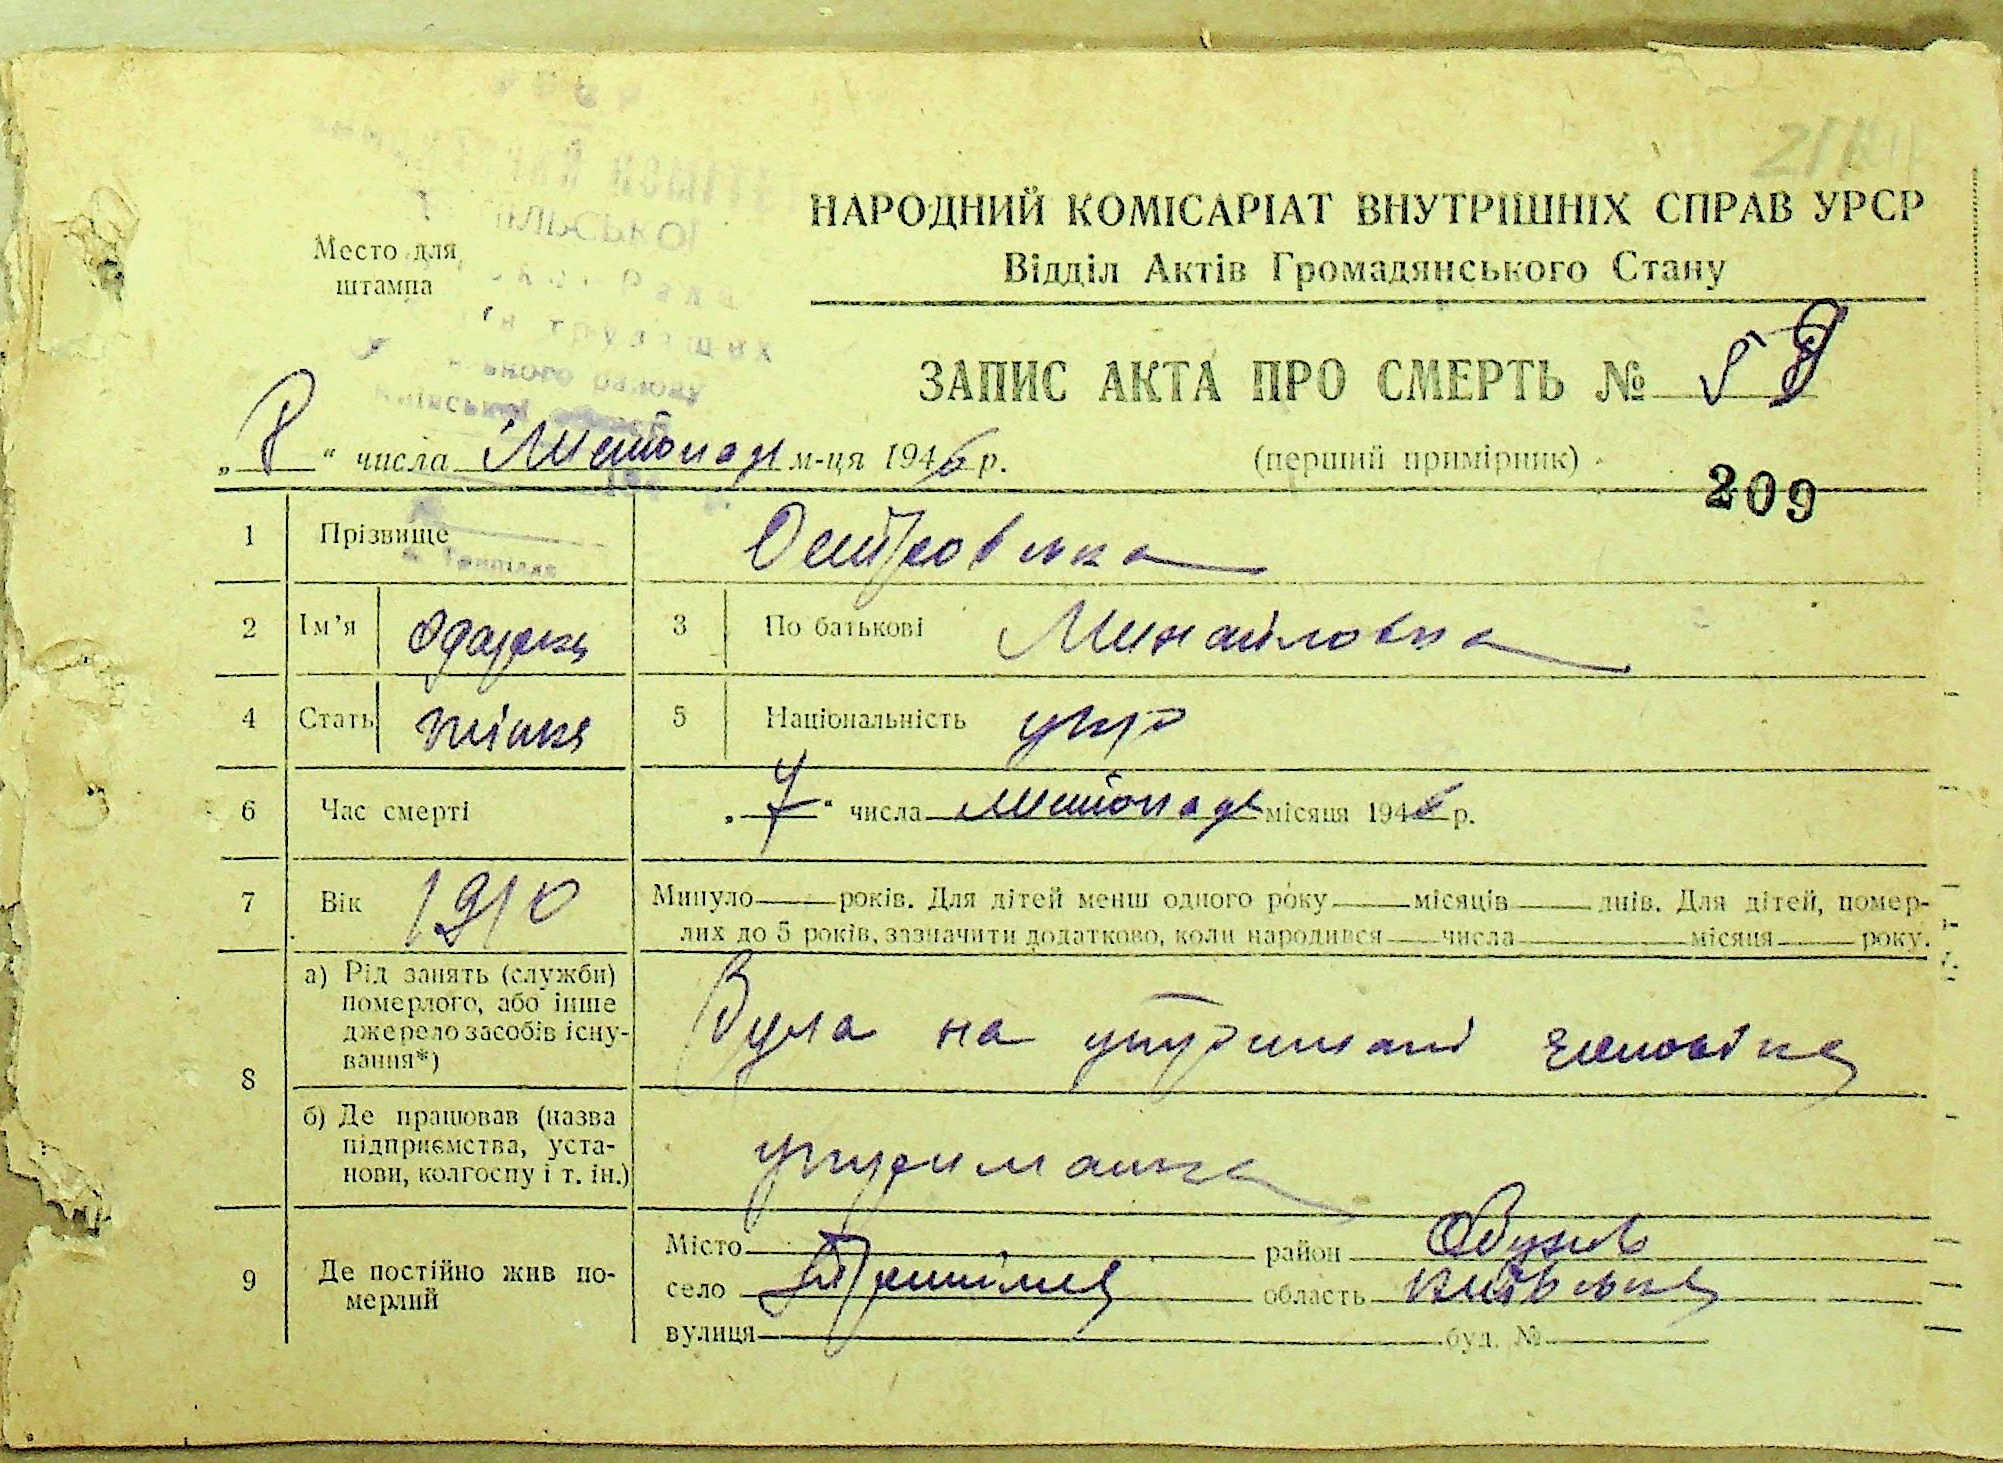 ІЛЬСЬКОЇ
Место для
штампа
НАРОДНИЙ КОМІСАРІАТ ВНУТРІШНІХ СПРАВ УРСР
Відділ Актів Громадянського Стану
ЗАПИС АКТА ПРО СМЕРТЬ №
„8“ числа Листопад м-ця 1946 р.
(перший примірник)
209
1 Прізвище Островська
2 Ім’я Одарка 3 По батькові Михайловна
4 Стать жінка 5 Національність укр
6 Час смерті „7“ числа листопад місяця 1946 р.
7 Вік 1910 Минуло років. Для дітей менш одного року місяців днів. Для дітей, помер-
лих до 5 років, зазначити додатково, коли народився числа місяця року.
8
а) Рід занять (служби)
померлого, або інше
джерело засобів існу-
вання*)
Була на утриманні чоловіка
б) Де працював (назва
підприємства, уста-
нови, колгоспу і т. ін.)
утриманка
9 Де постійно жив по-
мерлий
Місто район Обухов
село Трипілля область Київська
вулиця буд. №